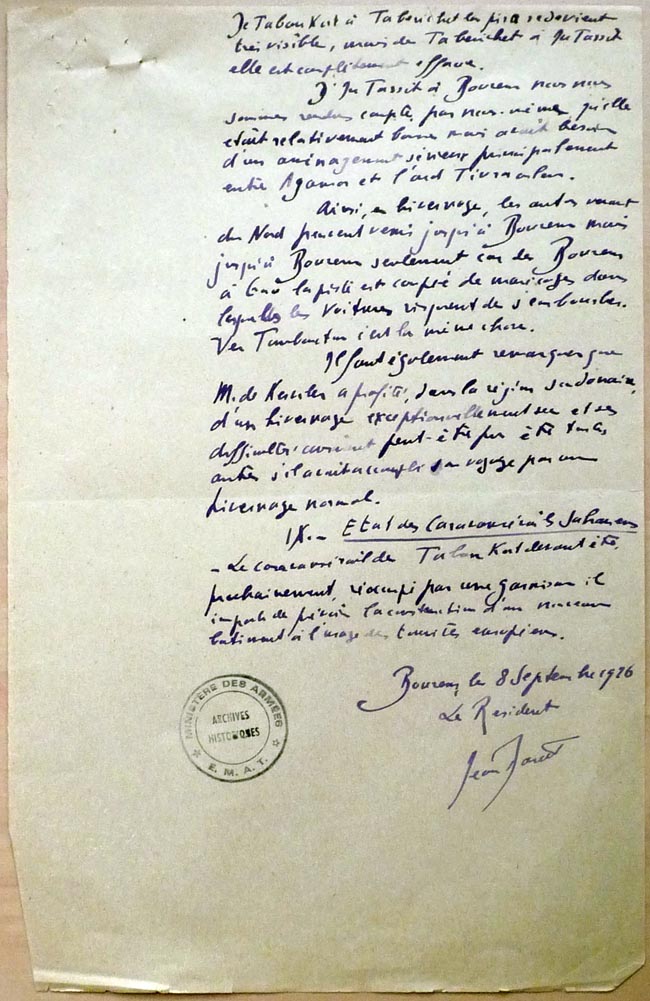 De Tabankort à Taberichet la piste redevient
très visible, mais de Taberichet à In Tassit
elle est complètement effacée.
D'In Tassit à Bourem nous nous
sommes rendus compte, par nous-mêmes, qu'elle
était relativement bonne mais avait besoin
d'un aménagement sérieux principalement
entre Agamor et l'oued
Ainsi, en hivernage, les autos venant
du Nord peuvent venir jusqu'à Bourem mais
jusqu'à Bourem seulement car de Bourem
à Gao la piste est coupée de marécages dans
lesquels les voitures risquent de s'embourber.
Vers Tombouctou c'est la même chose.
Il faut également remarquer que
M. de Kessler a profité, dans la région soudanaise,
d'un hivernage exceptionnellement sec et ses
difficultés auraient peut-être pu être toutes
autres s'il avait accompli son voyage par un
hivernage normal.
IX.- Etat des Caravansérails Sahariens
- Le caravansérail de Tabankort devant être,
prochainement, réoccupé par une garnison il
importe de prévoir la construction d'un nouveau
bâtiment à l'usage des touristes européens.
Bourem, le 8 Septembre 1926
Le Résident
Jean
MINISTÈRE DES ARMÉES
ARCHIVES
HISTORIQUES
E. M. A. T.